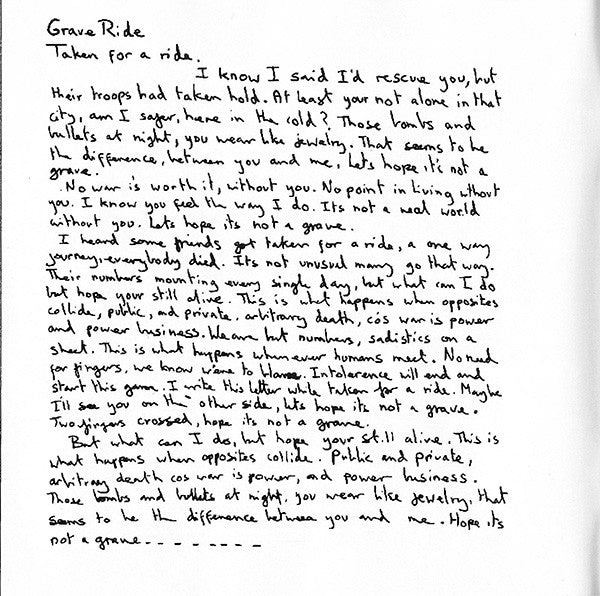 Grave Ride
Taken for a ride.
I know I said I'd rescue you, but
their troops had taken hold. At least your not alone in that
city, am I safer, here in the cold? Those bombs and
bullets at night, you wear like jewelry. That seems to be
the difference, between you and me, lets hope it's not a
grave.
No war is worth it, without you. No point in living without
you. I know you feel the way I do. Its not a real world
without you. Lets hope its not a grave.
I heard some friends got taken for a ride, a one way
journey-everybody died. Its not unusual many go that way.
Their numbers mounting every single day, but what can I do
but hope your still alive. This is what happens when opposites
collide, public, and private. arbitrary death, cos war is power
and power business. We are but numbers, sadistics on a
sheet. This is what happens whenever humans meet. No need
for fingers, we know where to blame. Intolerence will end and
start this game. I write this letter while taken for a ride. Maybe
I'll see you on the other side, lets hope its not a grave.
Two fingers crossed, hope its not a grave.
But what can I do, but hope your still alive. This is
what happens when opposites collide. Public and private,
arbitray death cos war is power, and power business.
Those bombs and bullets at night, you wear like jewelry, that
seems to be the difference between you and me. Hope its
not a grave - - - - - - - -